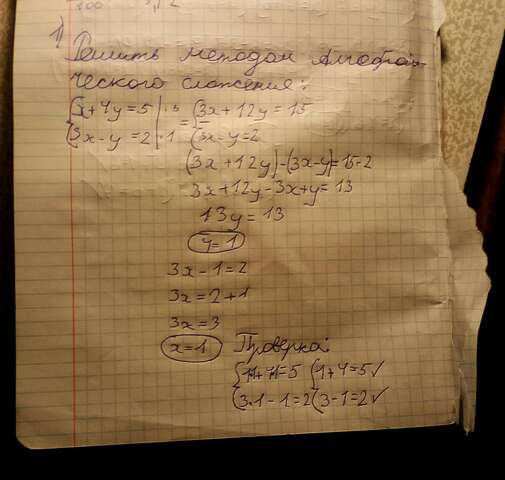 1)
Решить методом алгебраи-
ческого сложения:
{x+4y=5 |·3 = {3x+12y=15
{3x-y=2 |·1 {3x-y=2
(3x+12y)-(3x-y)=15-2
3x+12y-3x+y=13
13y=13
y=1
3x-1=2
3x=2+1
3x=3
x=1 Проверка:
=5 {1+4=5✓
{3·1-1=2 {3-1=2✓